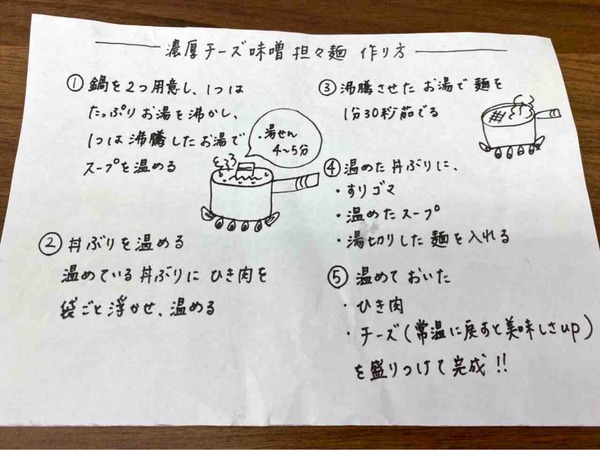 濃厚チーズ味噌担々麺 作り方
① 鍋を2つ用意し、1つは
たっぷりお湯を沸かし、
1つは沸騰したお湯で
スープを温める
・湯せん
4〜5分
② 丼ぶりを温める
温めている丼ぶりにひき肉を
袋ごと浮かせ、温める
③ 沸騰させたお湯で麺を
1分30秒茹でる
④ 温めた丼ぶりに、
・すりゴマ
・温めたスープ
・湯切りした麺を入れる
⑤ 温めておいた
・ひき肉
・チーズ(常温に戻すと美味しさup)
を盛りつけて完成!!